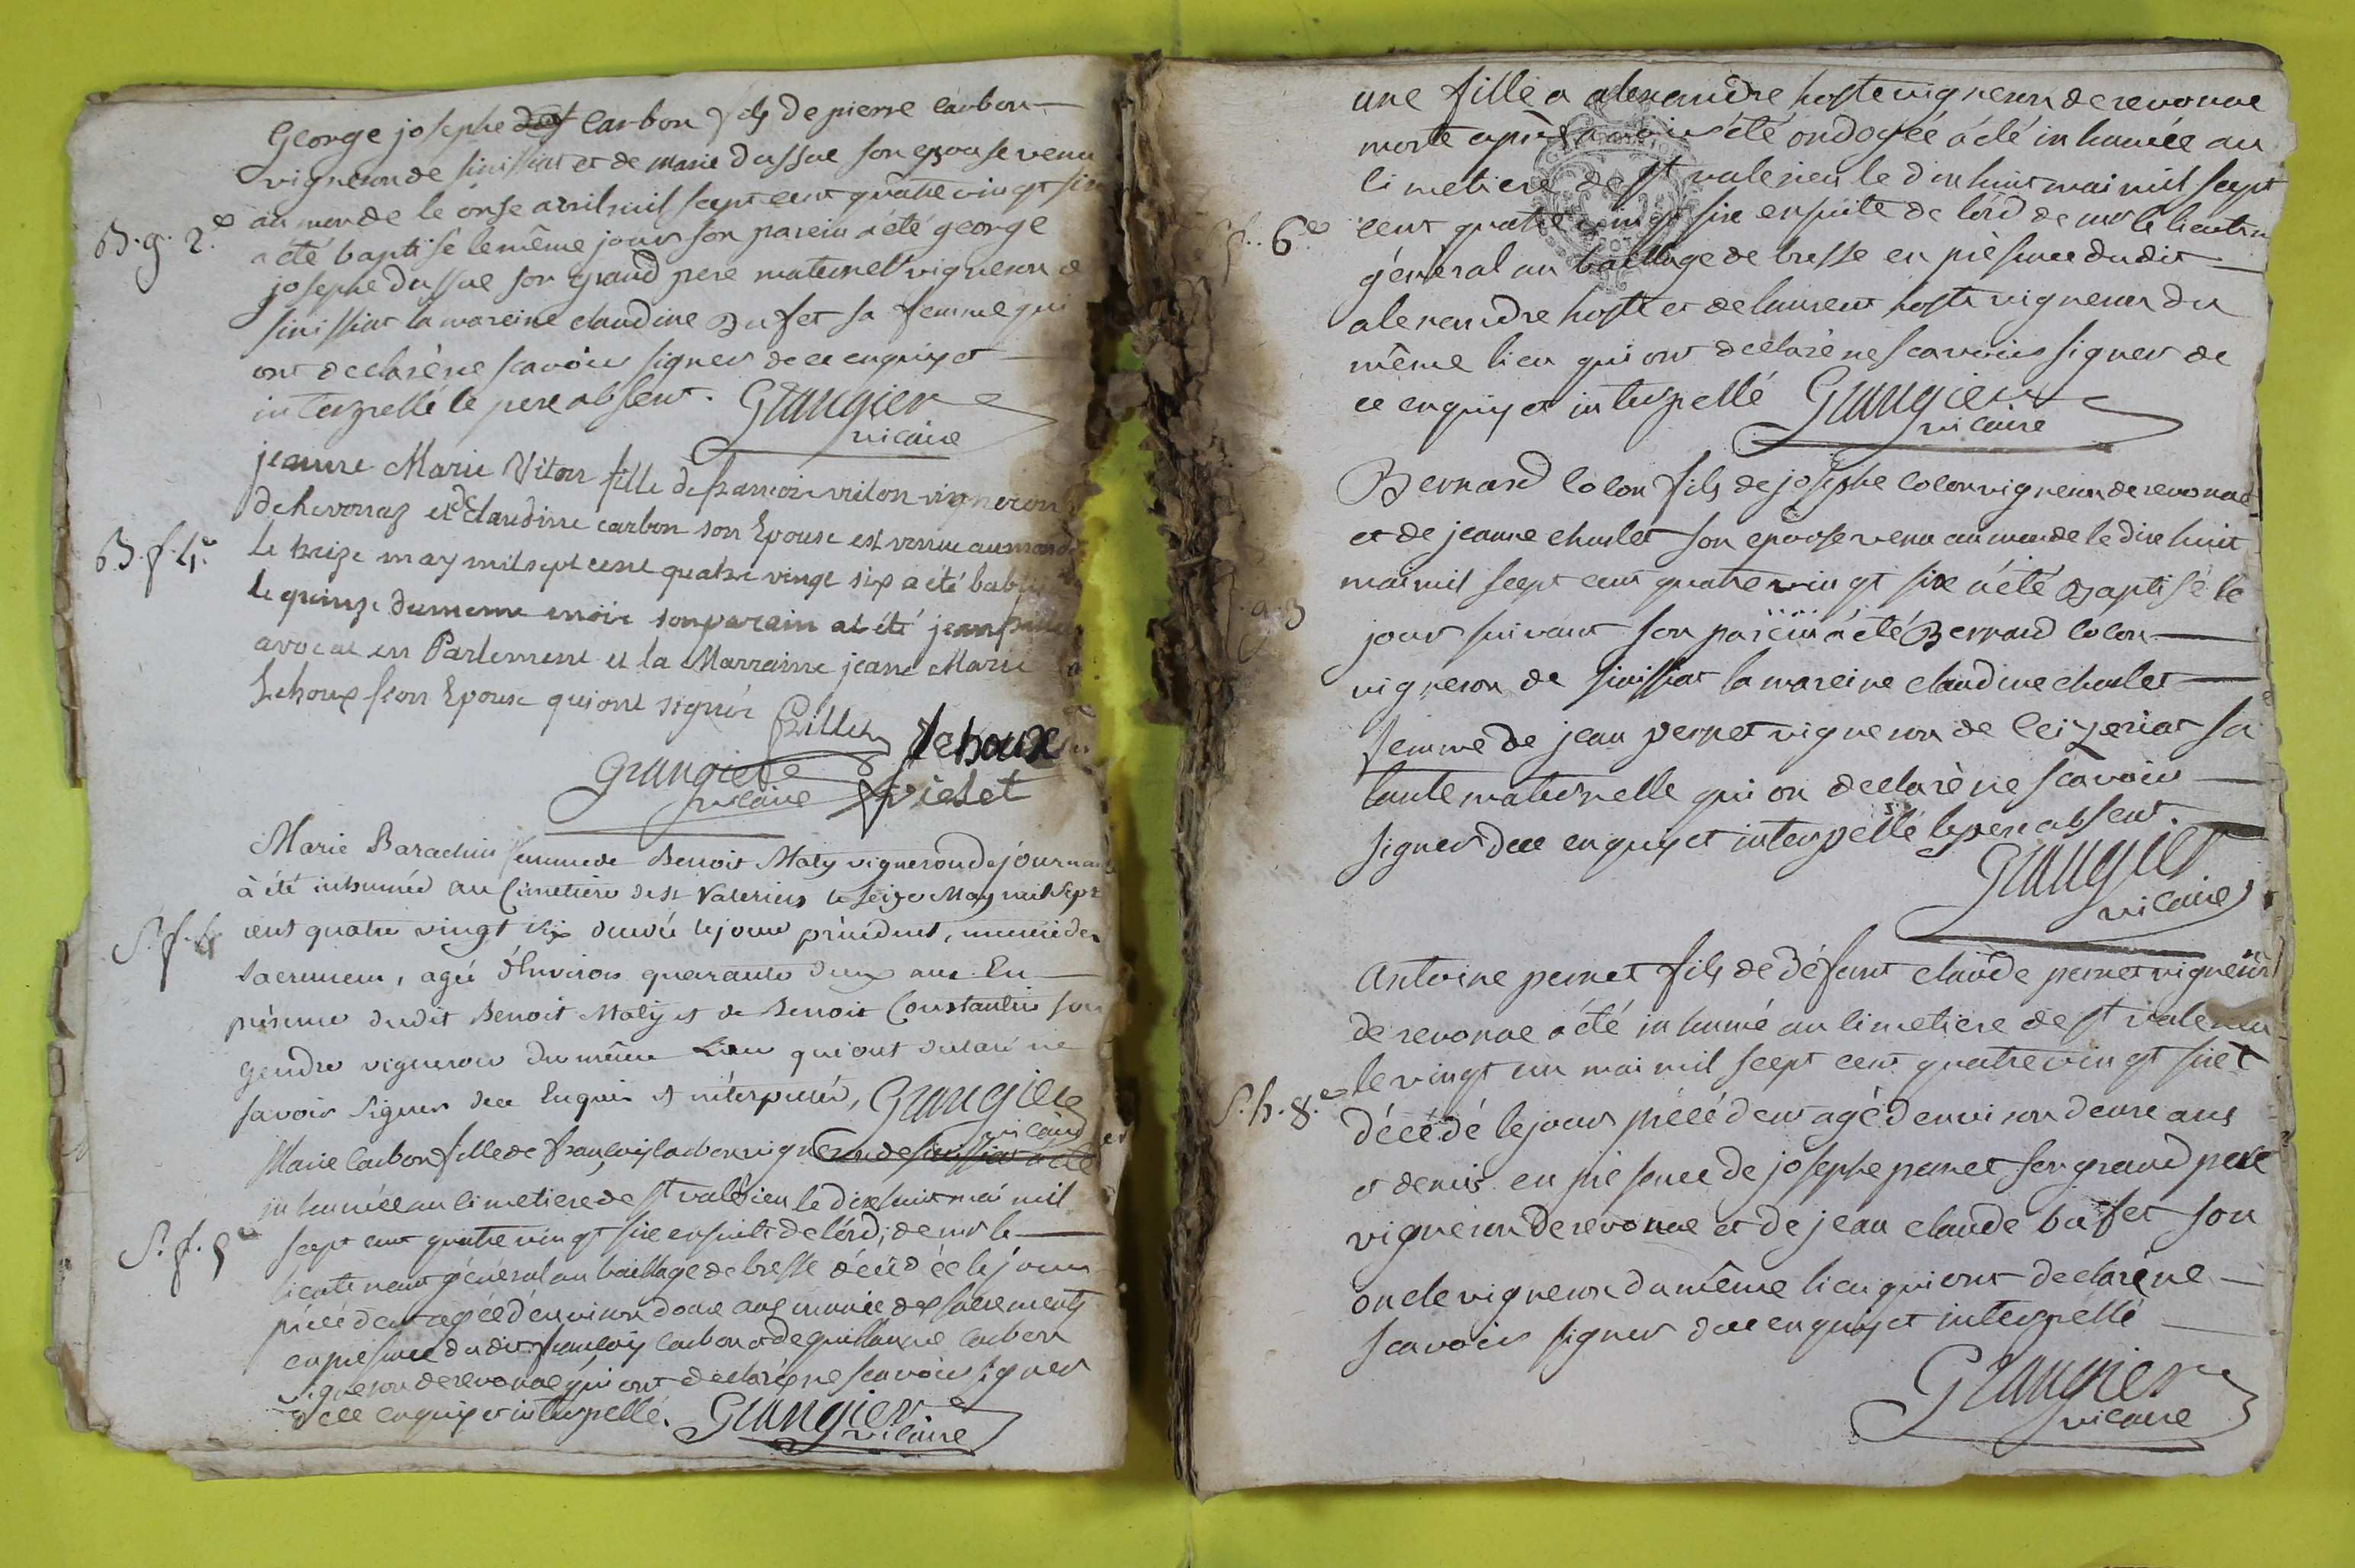 George josephe Carbon fils de pierre Carbon
vigneron de sinissiat et de marie Dussue son epouse venu
au monde le onse avril mil sept cent quatre vingt six
B. g. 2.e
a été baptisé le même jour son parein a été george
josephe dussue son grand pere maternel vigneron de
sinissiat la mareine claudine Bufet sa femme qui
ont declaré ne scavoir signer de ce enquis et
interpellé le pere absent. Grangier
vicaire
jeanne Marie Viton fille de francois viton vigneron
de hevonnas et de Claudine carbon son Epouse est venue au monde
B. f. 4.e
le treize may mil sept cent quatre vingt six a été
le quinze du meme mois son parain at été jean
avocat en Parlement et la Marraine jeane Marie
Jehoux son Epouse qui ont signés
Jehoux
Grangier
vicaire
Marie Barachin femme de Benoit Maly vigneron de journan
à été inhumée au Cimetière de st Valerien le seize May mil sept
S. f. 4
cent quatre vingt six decédé le jour précédent, munie des
sacremens, agée d'Environ quarante deux ans En
présence dudit Benoit Maly et de Benoit Constantin son
gendre vigneron du même Lieu qui ont declaré ne
savoir signer de ce Enquis et interpellés, Grangier
vicaire
Marie Carbon fille de françois carbon vigneron de sinissiat a été
inhumée au cimetiere de st valérien le dix huit mai mil
S. f. 5e
sept cent quatre vingt six ensuite de l'ord; de mr le
lieutenant général au bailliage de bresse décédée le jour
précédent agée d'environ douse ans munie des sacrements
en presence dudit françois carbon et de guillaume carbon
vigneron de revonae qui ont declaré ne scavoir signer
de ce enquis et interpellé. Grangier
vicaire
une fille a alexandre hoste vigneron de revonae
morte après avoir été ondoyée a été inhumée au
cimetiere de st valerien le dix huit mai mil sept
6.e
cent quatre vingt six ensuite de l'ord de mr le lieuten
général au bailliage de bresse en présence dudit
alexandre hoste et de laurent hoste vigneron du
même lieu qui ont declaré ne scavoir signer de
ce enquis et interpellé Grangier
vicaire
Bernard colon fils de josephe colon vigneron de revonae
et de jeanne charlet son epouse venu au monde le dix huit
mai mil sept cent quatre vingt six a été Baptisé le
jour suivant son parein a été Bernard colon
vigneron de sinissiat la mareine claudine charlet
femme de jean pernet vigneron de ceizeriat sa
tante maternelle qui on declaré ne scavoir
signer de ce enquis et interpéllé le pere absent.
Grangier
vicaire
Antoine pernet fils de défunt claude pernet vigneron
de revonae a été inhumé au cimetiere de st valerien
S. h. 8.e
le vingt un mai mil sept cent quatre vingt six
décédé le jour précédent agé d'environ deux ans
et demis en présence de josephe pernet son grand pere
vigneron de revonae et de jean claude bufet son
oncle vigneron du même lieu qui ont declaré ne
scavoir signer de ce enquis et interpellé
Grangier
vicaire